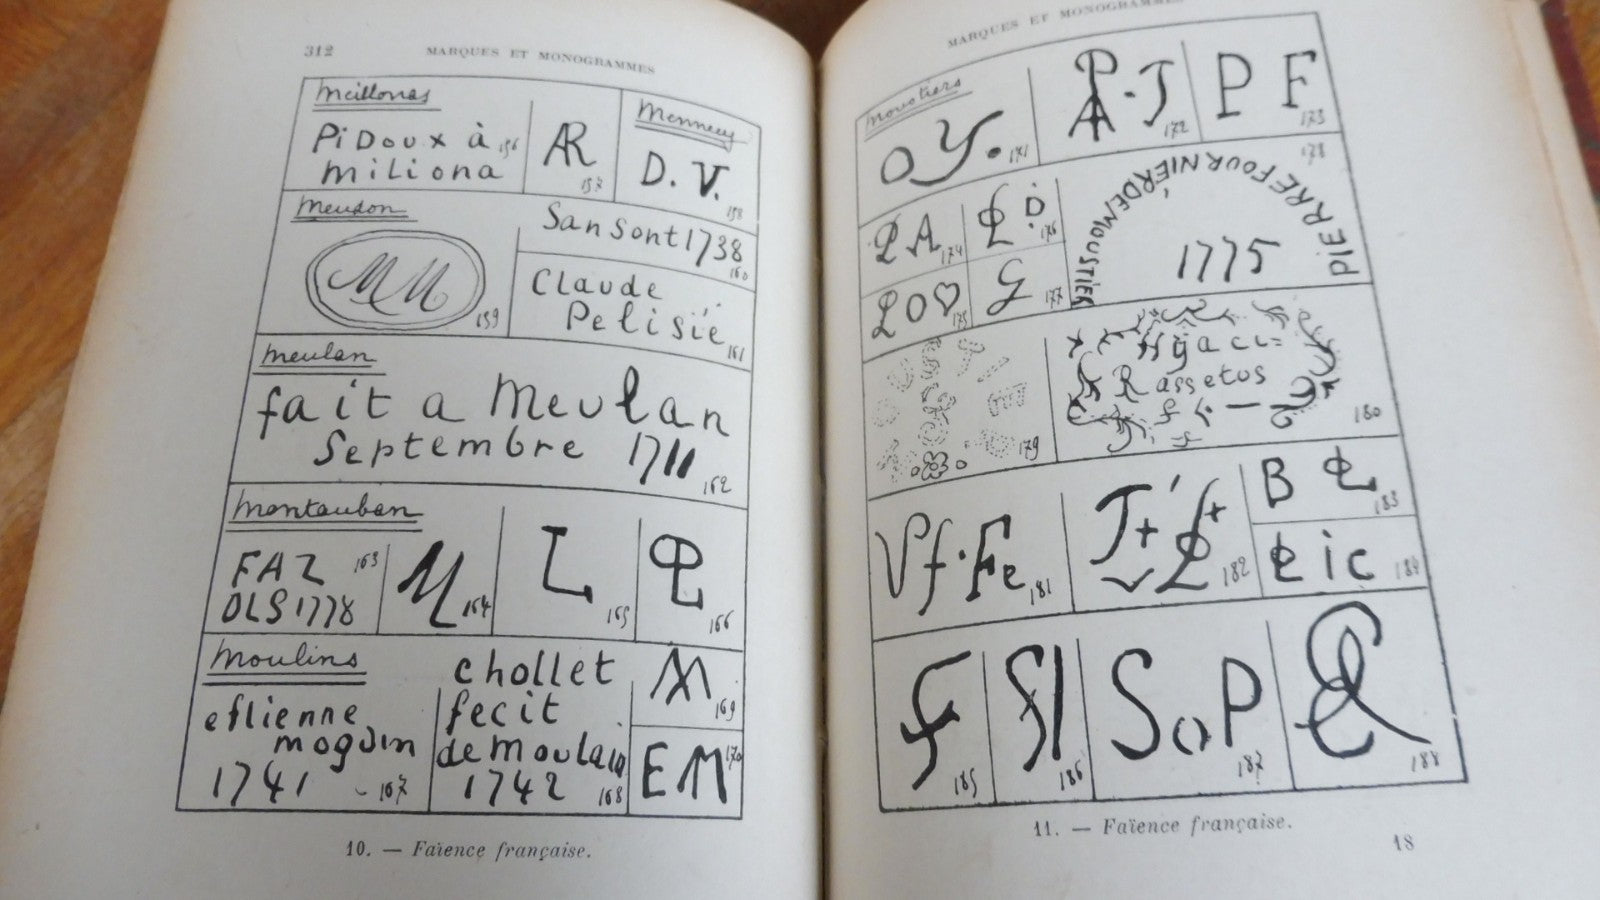 312
MARQUES ET MONOGRAMMES
Meillonas
PiDoux à
miliona
156
AR
157
Mennecy
D. V.
158
Meudon
MM
159
Sansont 1738
160
Claude
Pelisié
161
meulan
fait a Meulan
Septembre 1711
162
Montauban
FAZ
OLS 1778
163
M
164
L
165
166
Moulins
estienne
mogvin
1741
167
chollet
fecit
de moulain
1742
168
M
169
EM
170
10. — Faïence française.
MARQUES ET MONOGRAMMES
Moustiers
OY.
171
PA·J
172
PF
173
PA
174
LO♡
175
D
176
G
177
PIERRE FOURNIER DE MOUSTIER
1775
178
179
Hyaci=
Rassetus
180
Vf·Fe
181
182
B
183
eic
184
185
186
SoP
187
188
11. — Faïence française.
18